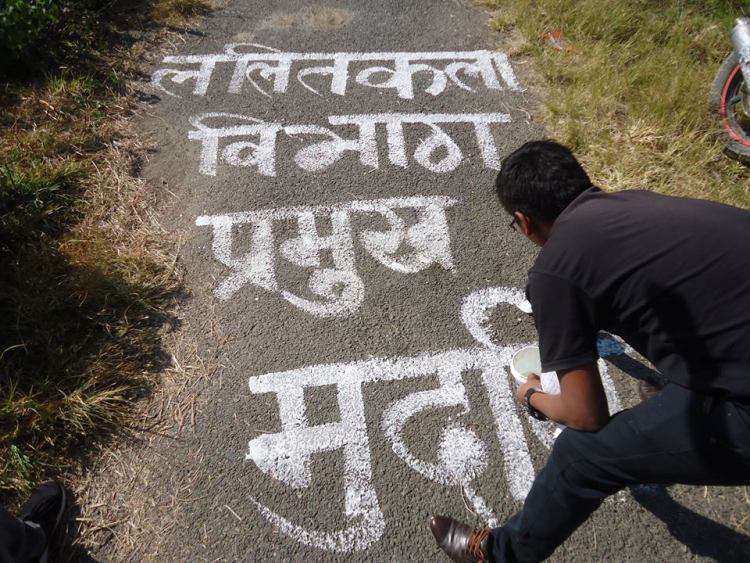 ललितकला
विभाग
प्रमुख